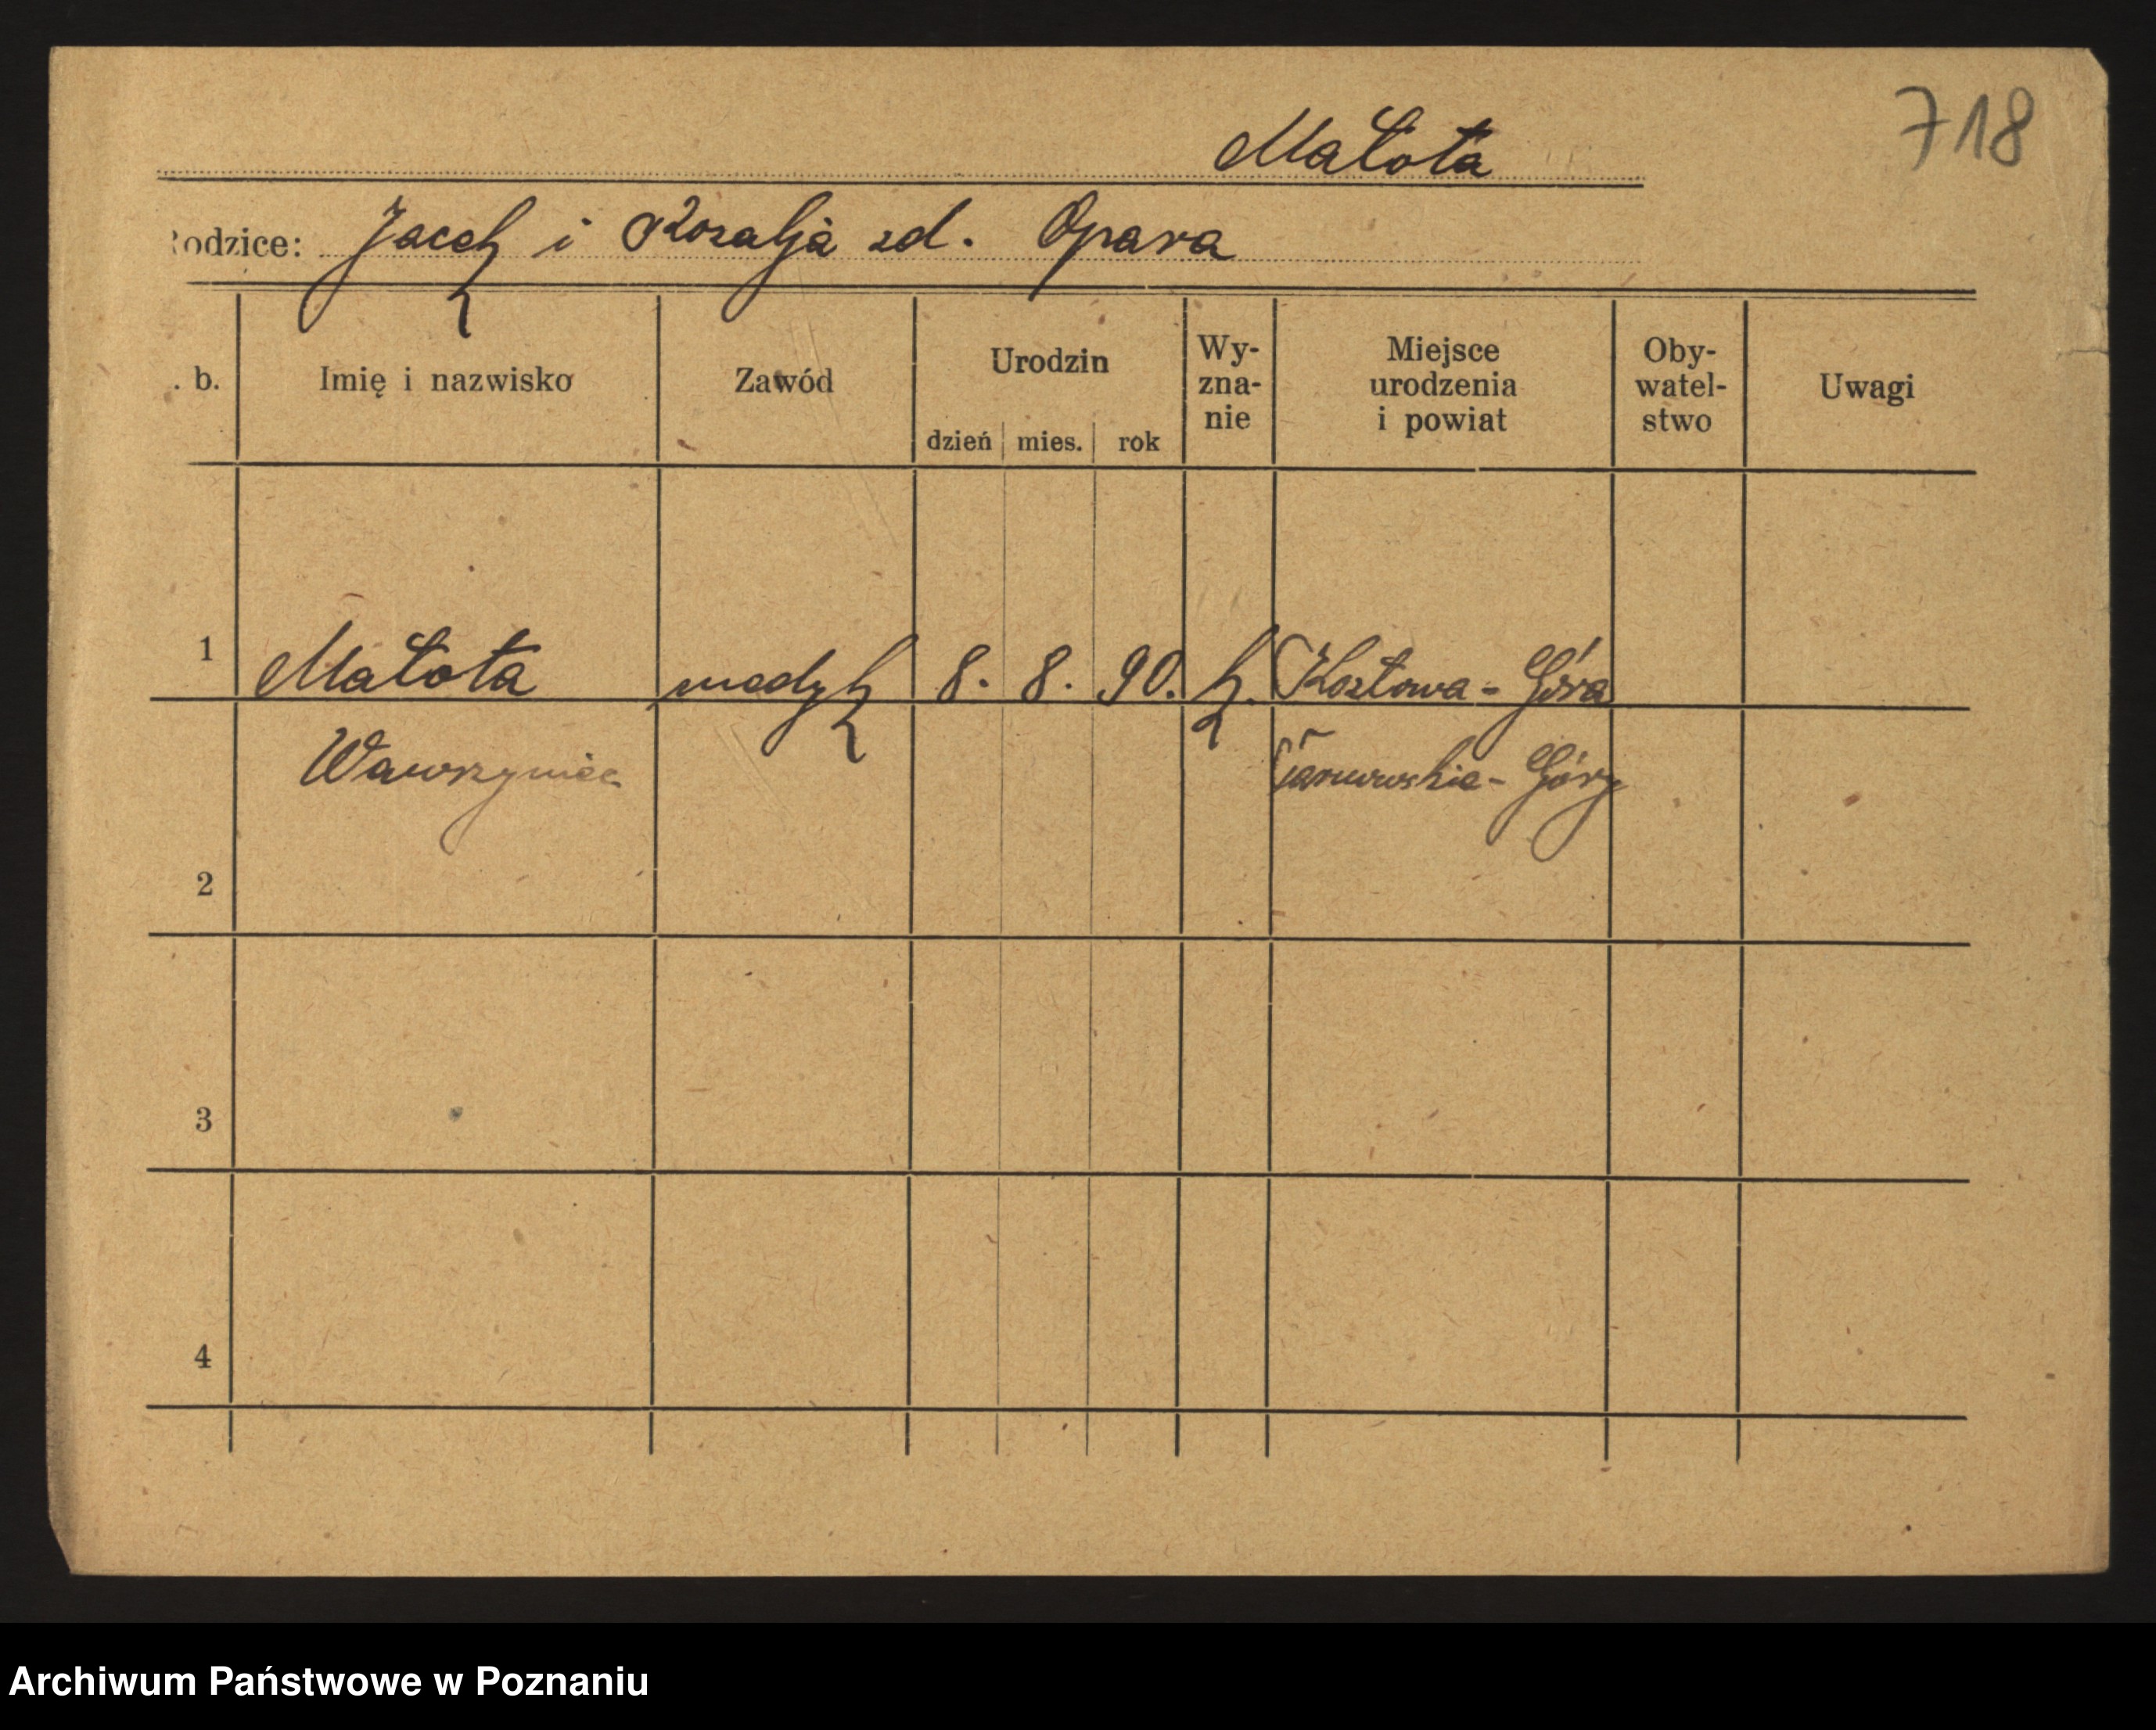 718
Małota
Rodzice: Jacek i Rozalja zd. Opara
. b.
Imię i nazwisko
Zawód
Urodzin
dzień mies. rok
Wy-
zna-
nie
Miejsce
urodzenia
i powiat
Oby-
watel-
stwo
Uwagi
1 Małota 8. 8. 90. k. Kozłowa-Góra
Wawrzyniec Tarnowskie-Góry
2
3
4
Archiwum Państwowe w Poznaniu